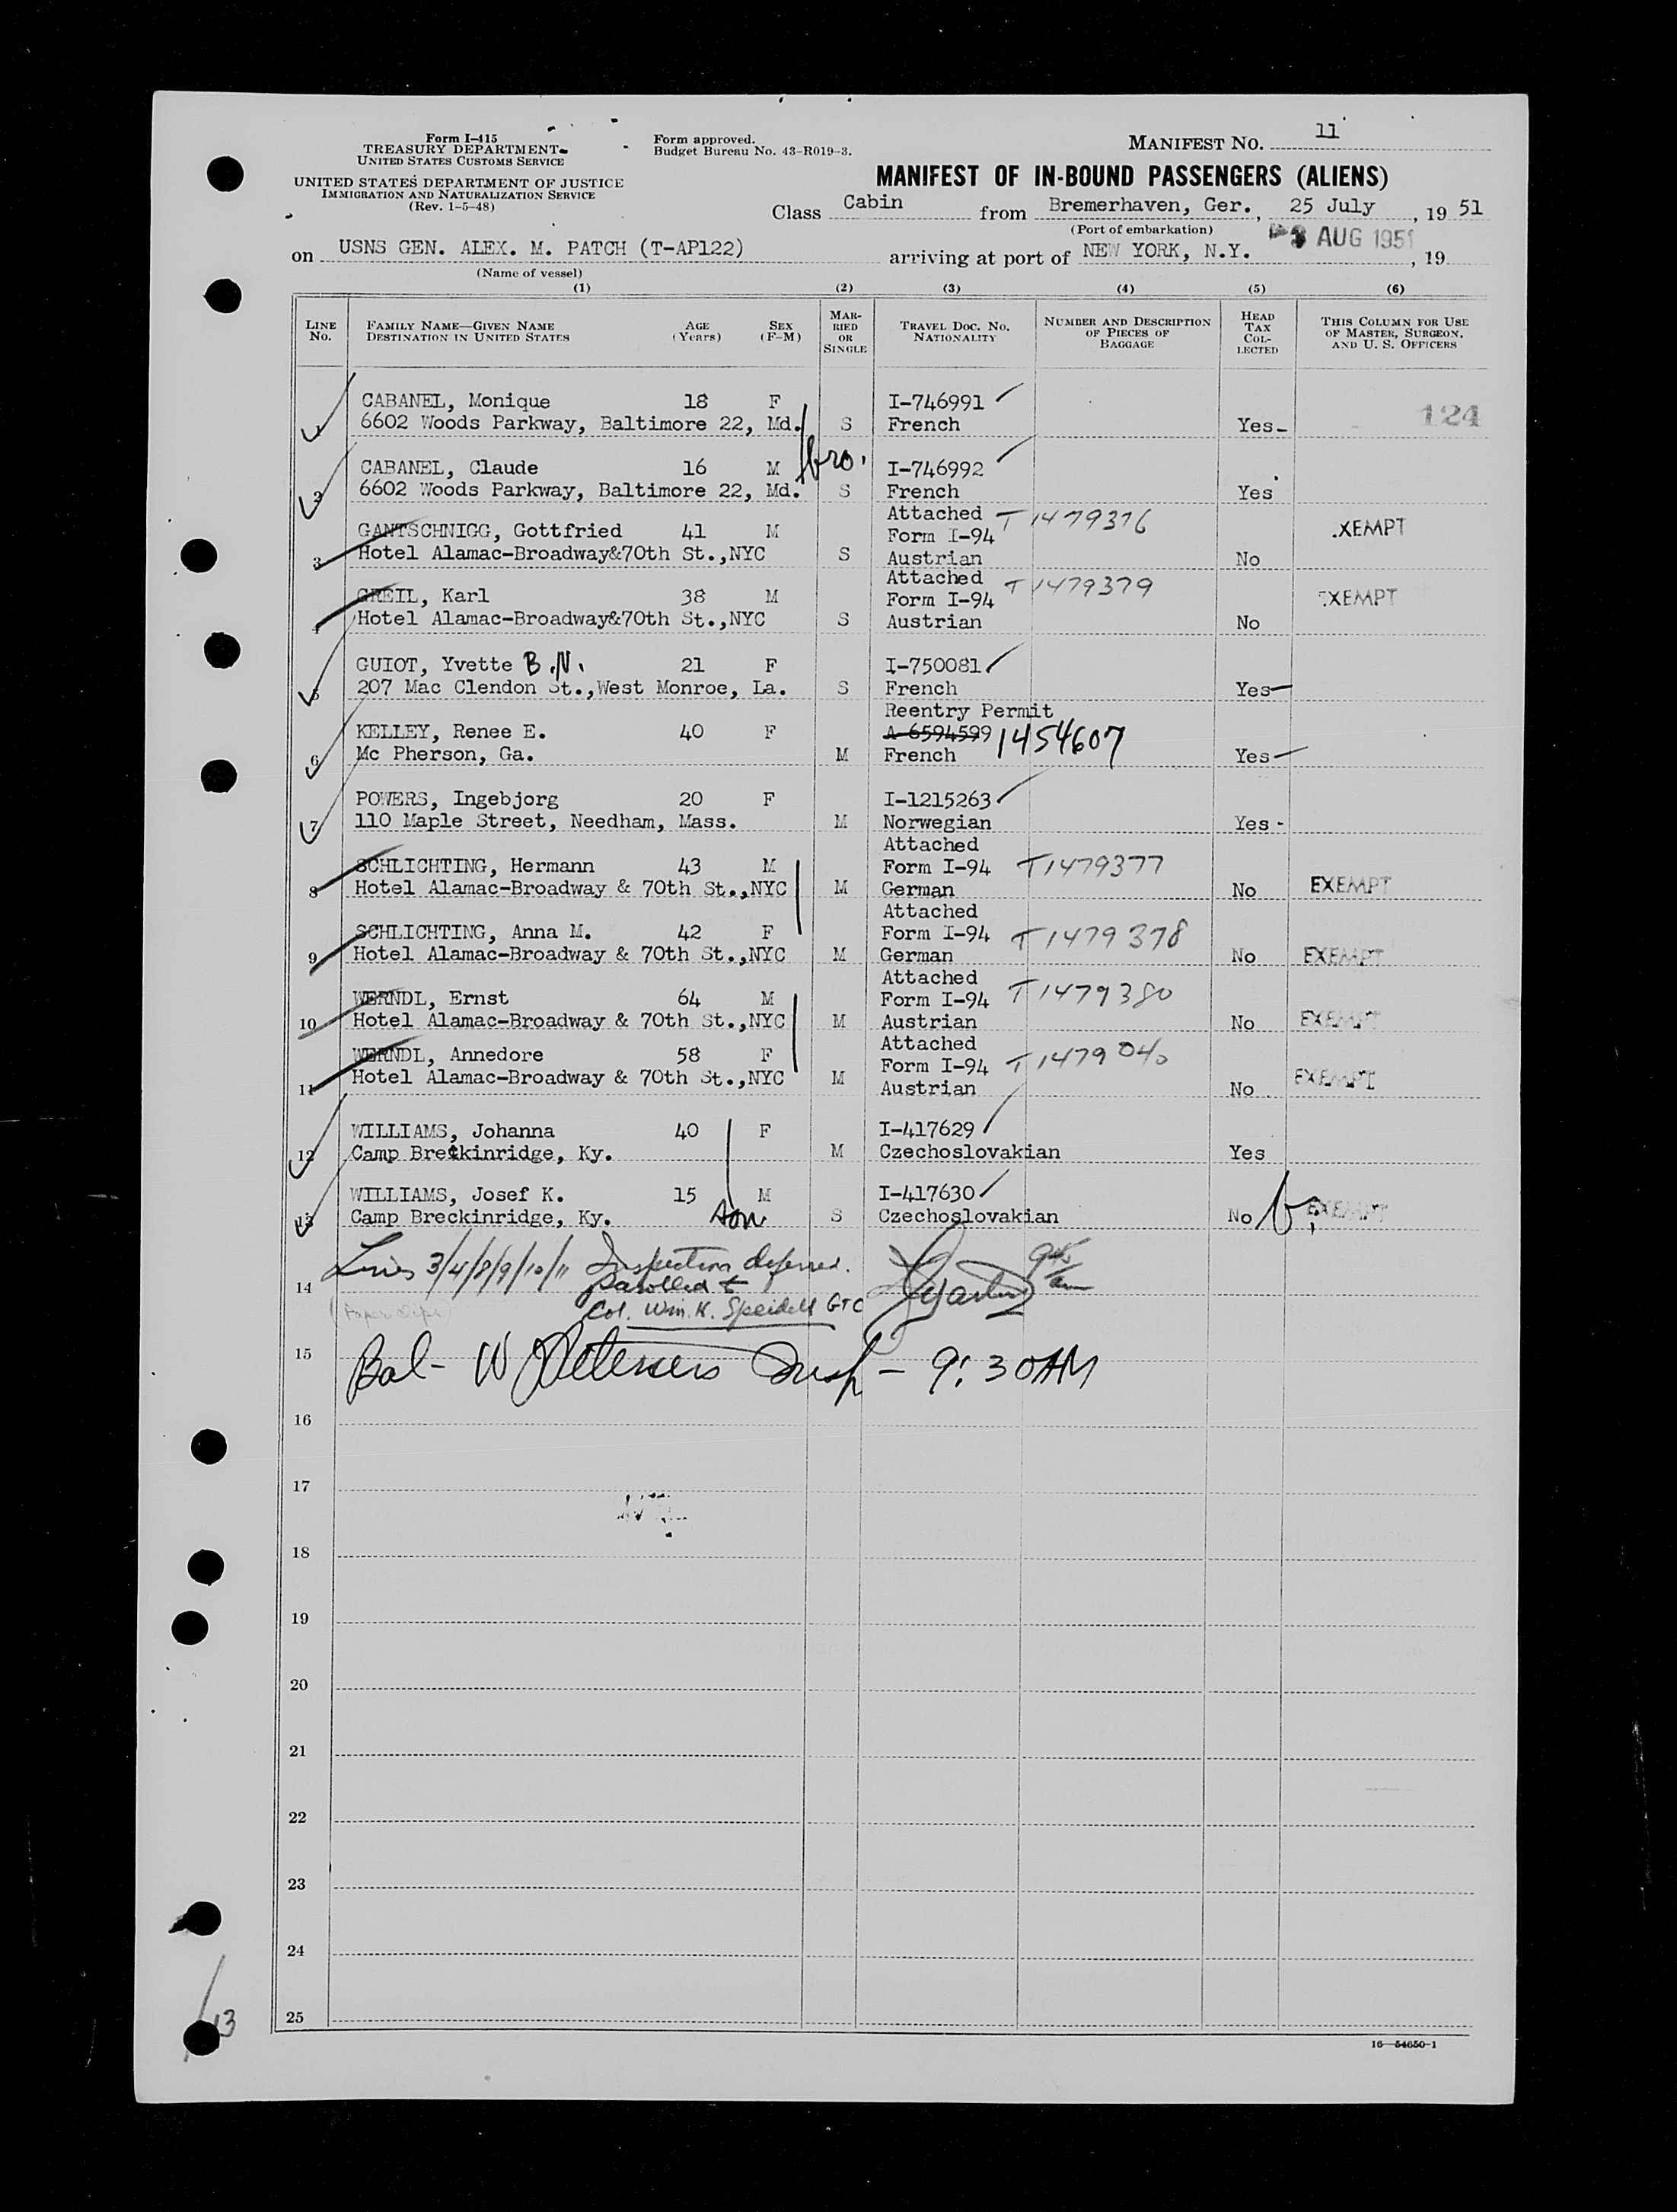 Form I-415
TREASURY DEPARTMENT
UNITED STATES CUSTOMS SERVICE
UNITED STATES DEPARTMENT OF JUSTICE
IMMIGRATION AND NATURALIZATION SERVICE
(Rev. 1-5-48)
Form approved.
Budget Bureau No. 43-R019-3.
MANIFEST NO. 11
MANIFEST OF IN-BOUND PASSENGERS (ALIENS)
Class Cabin from Bremerhaven, Ger., 25 July, 19 51
(Port of embarkation)
on USNS GEN. ALEX. M. PATCH (T-AP122) arriving at port of NEW YORK, N.Y. AUG 1951, 19
(Name of vessel)
(1) (2) (3) (4) (5) (6)
LINE NO.
FAMILY NAME—GIVEN NAME
DESTINATION IN UNITED STATES
AGE (Years)
SEX (F-M)
MARRIED OR SINGLE
TRAVEL DOC. NO. NATIONALITY
NUMBER AND DESCRIPTION OF PIECES OF BAGGAGE
HEAD TAX COLLECTED
THIS COLUMN FOR USE OF MASTER, SURGEON, AND U. S. OFFICERS
CABANEL, Monique 18 F I-746991
1 6602 Woods Parkway, Baltimore 22, Md. S French Yes 124
bro.
CABANEL, Claude 16 M I-746992
2 6602 Woods Parkway, Baltimore 22, Md. S French Yes
Attached
GANTSCHNIGG, Gottfried 41 M Form I-94 T1479376 XEMPT
3 Hotel Alamac-Broadway&70th St.,NYC S Austrian No
Attached
GREIL, Karl 38 M Form I-94 T1479379 EXEMPT
4 Hotel Alamac-Broadway&70th St.,NYC S Austrian No
GUIOT, Yvette B.N. 21 F I-750081
5 207 Mac Clendon St.,West Monroe, La. S French Yes
Reentry Permit
KELLEY, Renee E. 40 F A-6594599 1454607
6 Mc Pherson, Ga. M French Yes
POWERS, Ingebjorg 20 F I-1215263
7 110 Maple Street, Needham, Mass. M Norwegian Yes
Attached
SCHLICHTING, Hermann 43 M Form I-94 T1479377
8 Hotel Alamac-Broadway & 70th St.,NYC M German No EXEMPT
Attached
SCHLICHTING, Anna M. 42 F Form I-94 T1479378
9 Hotel Alamac-Broadway & 70th St.,NYC M German No EXEMPT
Attached
WERNDL, Ernst 64 M Form I-94 T1479380
10 Hotel Alamac-Broadway & 70th St.,NYC M Austrian No EXEMPT
Attached
WERNDL, Annedore 58 F Form I-94 T1479040
11 Hotel Alamac-Broadway & 70th St.,NYC M Austrian No EXEMPT
WILLIAMS, Johanna 40 F I-417629
12 Camp Breckinridge, Ky. M Czechoslovakian Yes
WILLIAMS, Josef K. 15 M I-417630
13 Camp Breckinridge, Ky. son S Czechoslovakian No EXEMPT
Lines 3/4/8/9/10/11 Inspection deferred.
14 parolled to
Col. Wm. K. Speidell GTC
15 Bal- W Petersen Insp - 9:30AM
16
17
18
19
20
21
22
23
24
25
13
16—54650-1